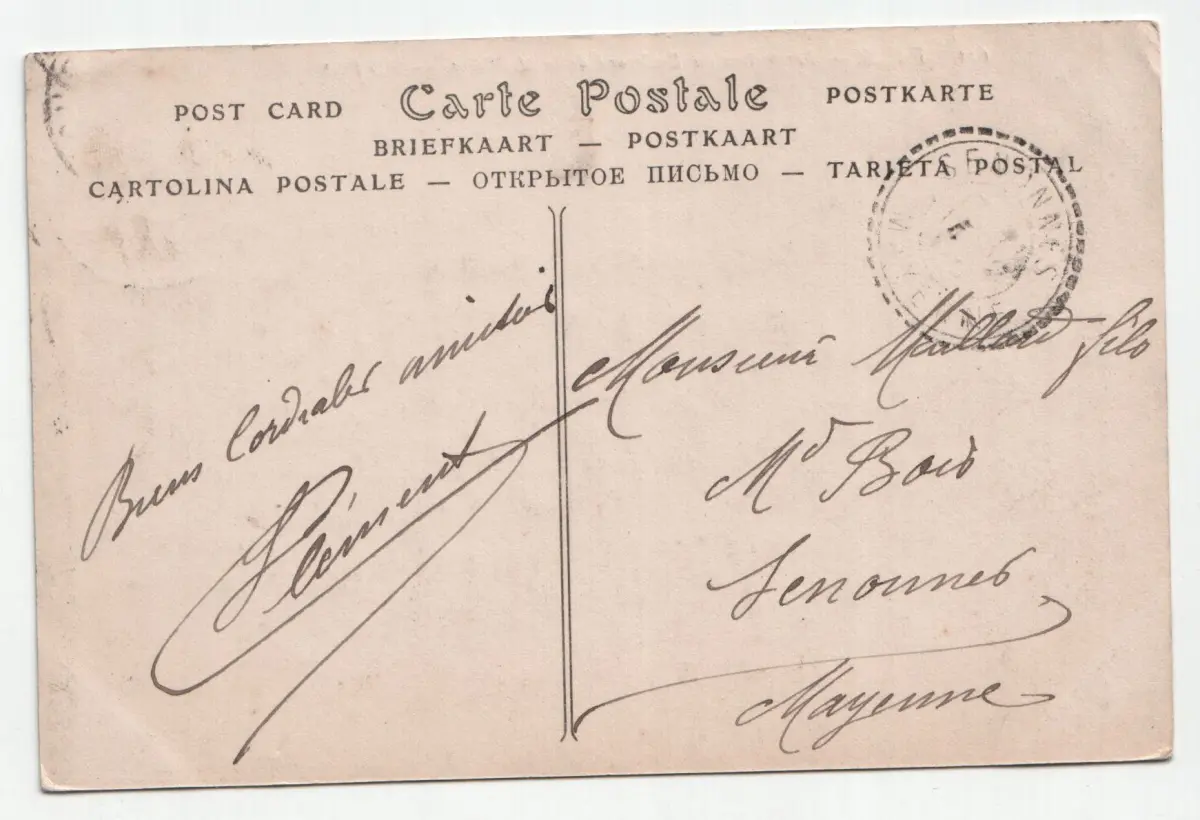 POST CARD Carte Postale POSTKARTE
BRIEFKAART — POSTKAART
CARTOLINA POSTALE — ОТКРЫТОЕ ПИСЬМО — TARJETA POSTAL
SENONNES
Biens Cordiales amitiés
Clément
Monsieur fils
Md Bois
Senonnes
Mayenne